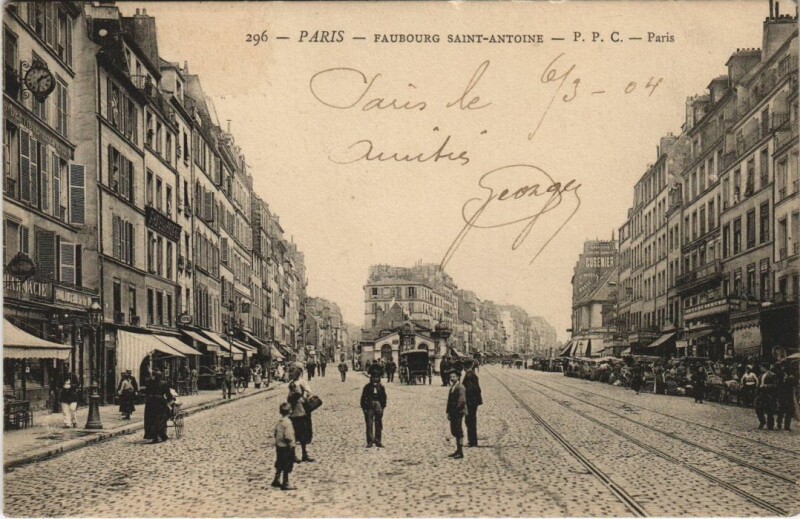 296 — PARIS — FAUBOURG SAINT-ANTOINE — P. P. C. — Paris
Paris le 6/3 - 04
Amitiés
Georges
PHARMACIE